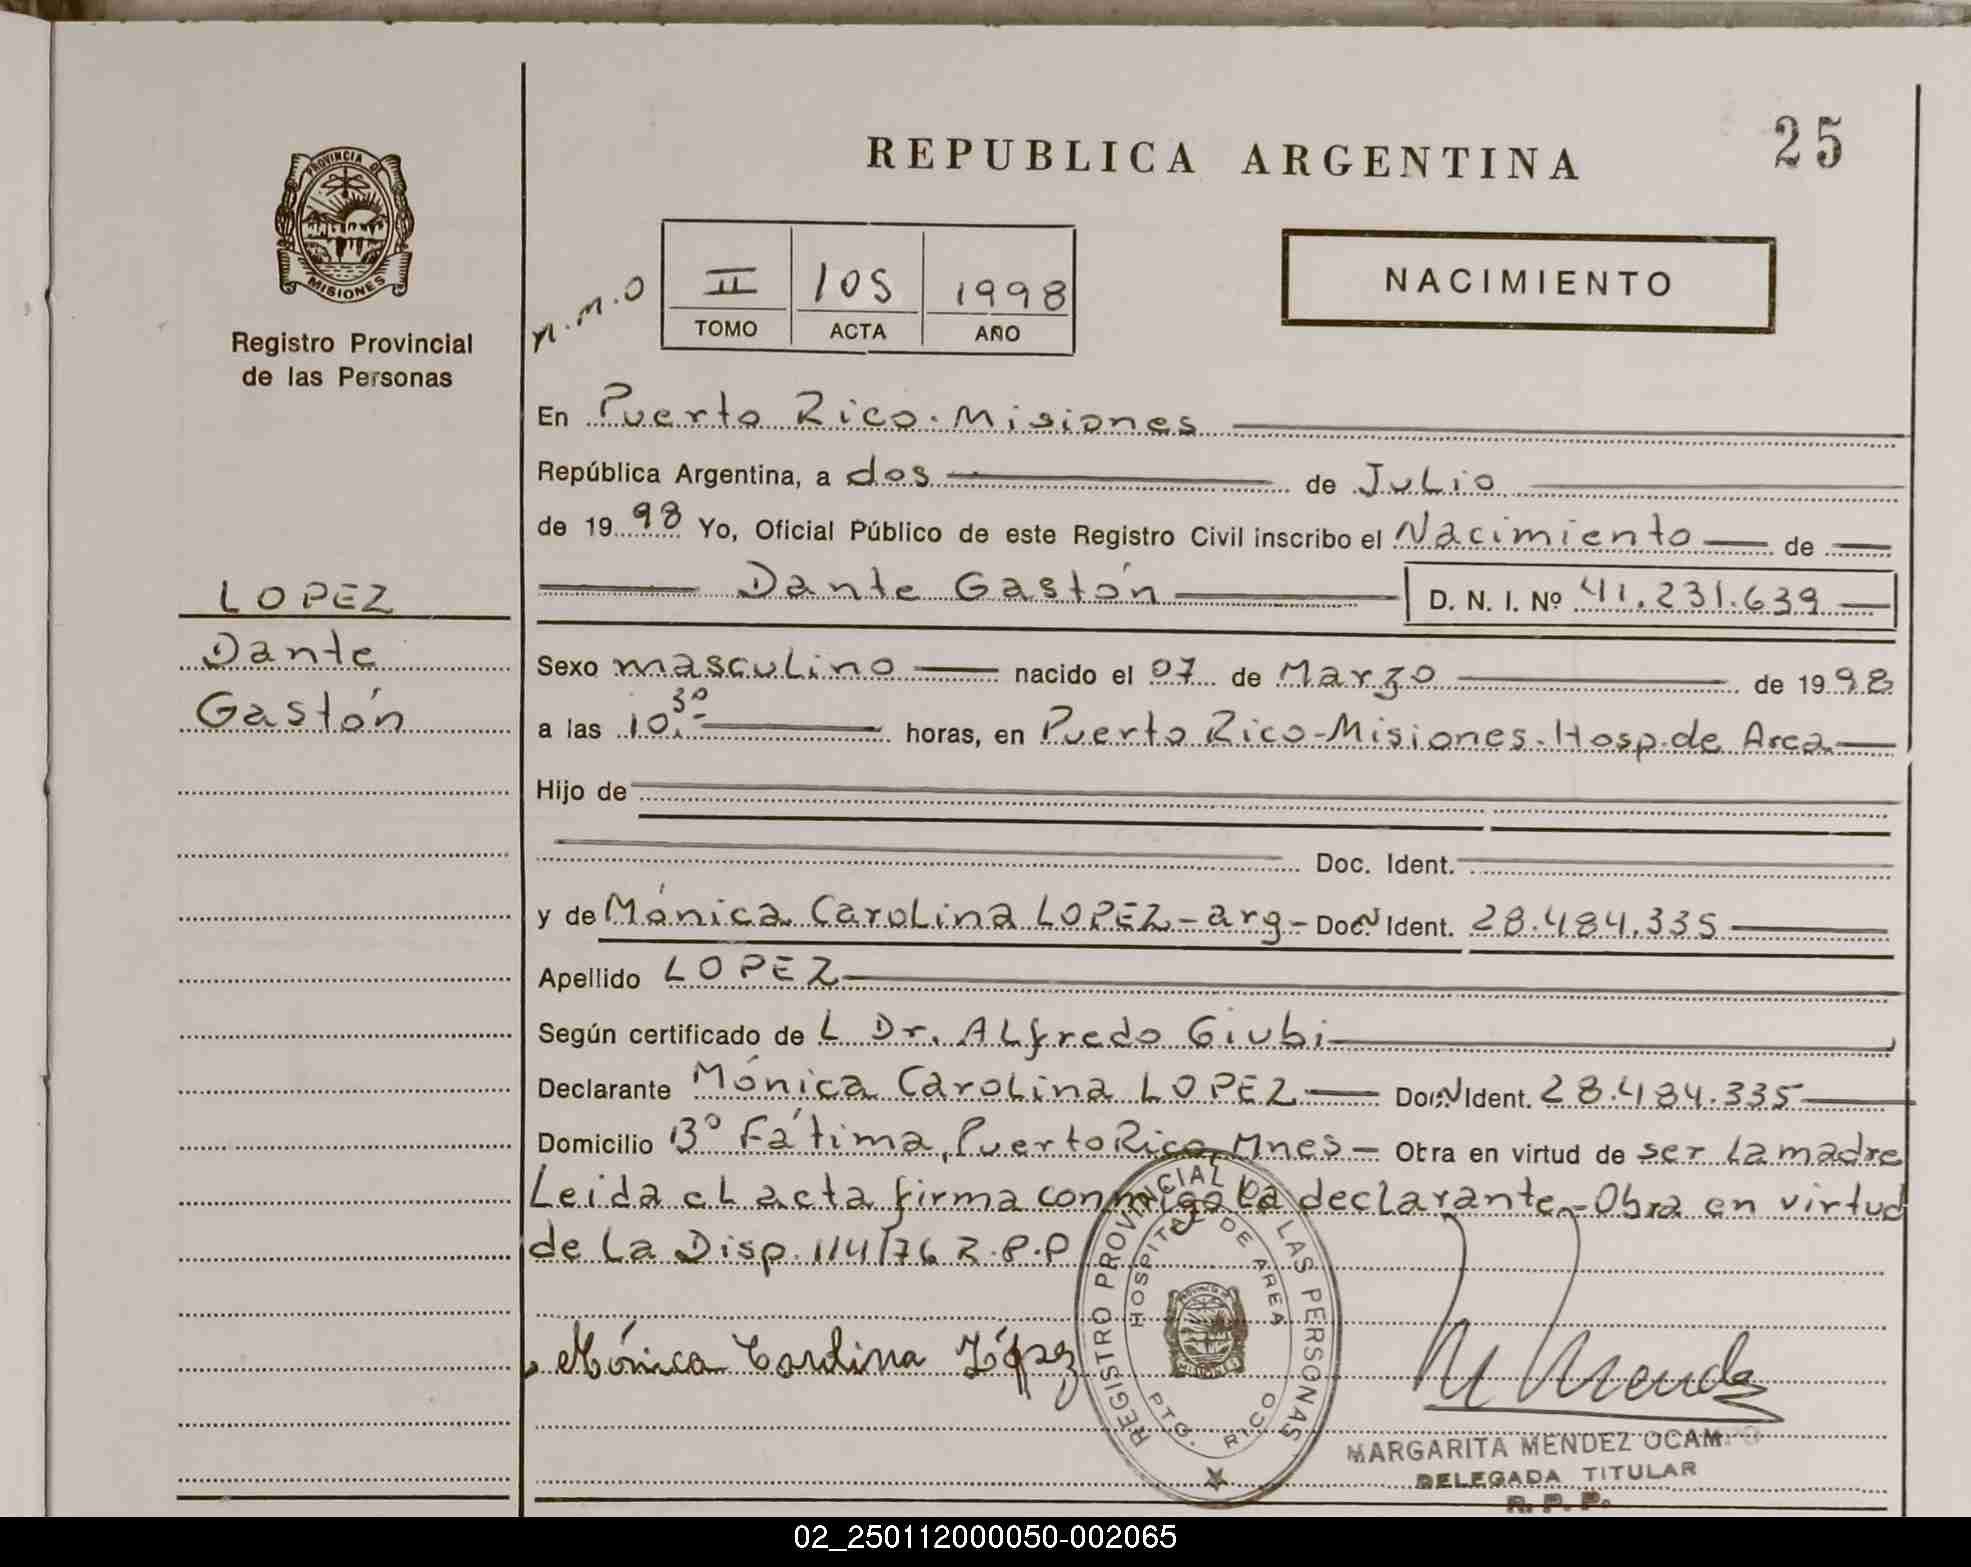 REPUBLICA ARGENTINA
25
PROVINCIA DE
MISIONES
Registro Provincial
de las Personas
n.m.o
II 105 1998
TOMO ACTA AÑO
NACIMIENTO
En Puerto Rico. Misiones
República Argentina, a dos de Julio
de 1998 Yo, Oficial Público de este Registro Civil inscribo el Nacimiento de
Dante Gastón D. N. I. Nº 41.231.639
LOPEZ
Dante
Gastón
Sexo masculino nacido el 07 de Marzo de 1998
a las 10.30 horas, en Puerto Rico-Misiones. Hosp. de Area
Hijo de
Doc. Ident.
y de Mónica Carolina LOPEZ - arg - Doc. Ident. 28.484.335
Apellido LOPEZ
Según certificado de L Dr. Alfredo Giubi
Declarante Mónica Carolina LOPEZ Doc. Ident. 28.484.335
Domicilio Bº Fátima, Puerto Rico, Mnes - Obra en virtud de ser la madre
Leida el acta firma conmigo la declarante - Obra en virtud
de la Disp. 114/76 R.P.P
Mónica Carolina López
REGISTRO PROVINCIAL DE LAS PERSONAS
HOSPITAL DE AREA
PTO. RICO
M Mendez
MARGARITA MENDEZ OCAMPO
DELEGADA TITULAR
R. P. P.
02_250112000050-002065